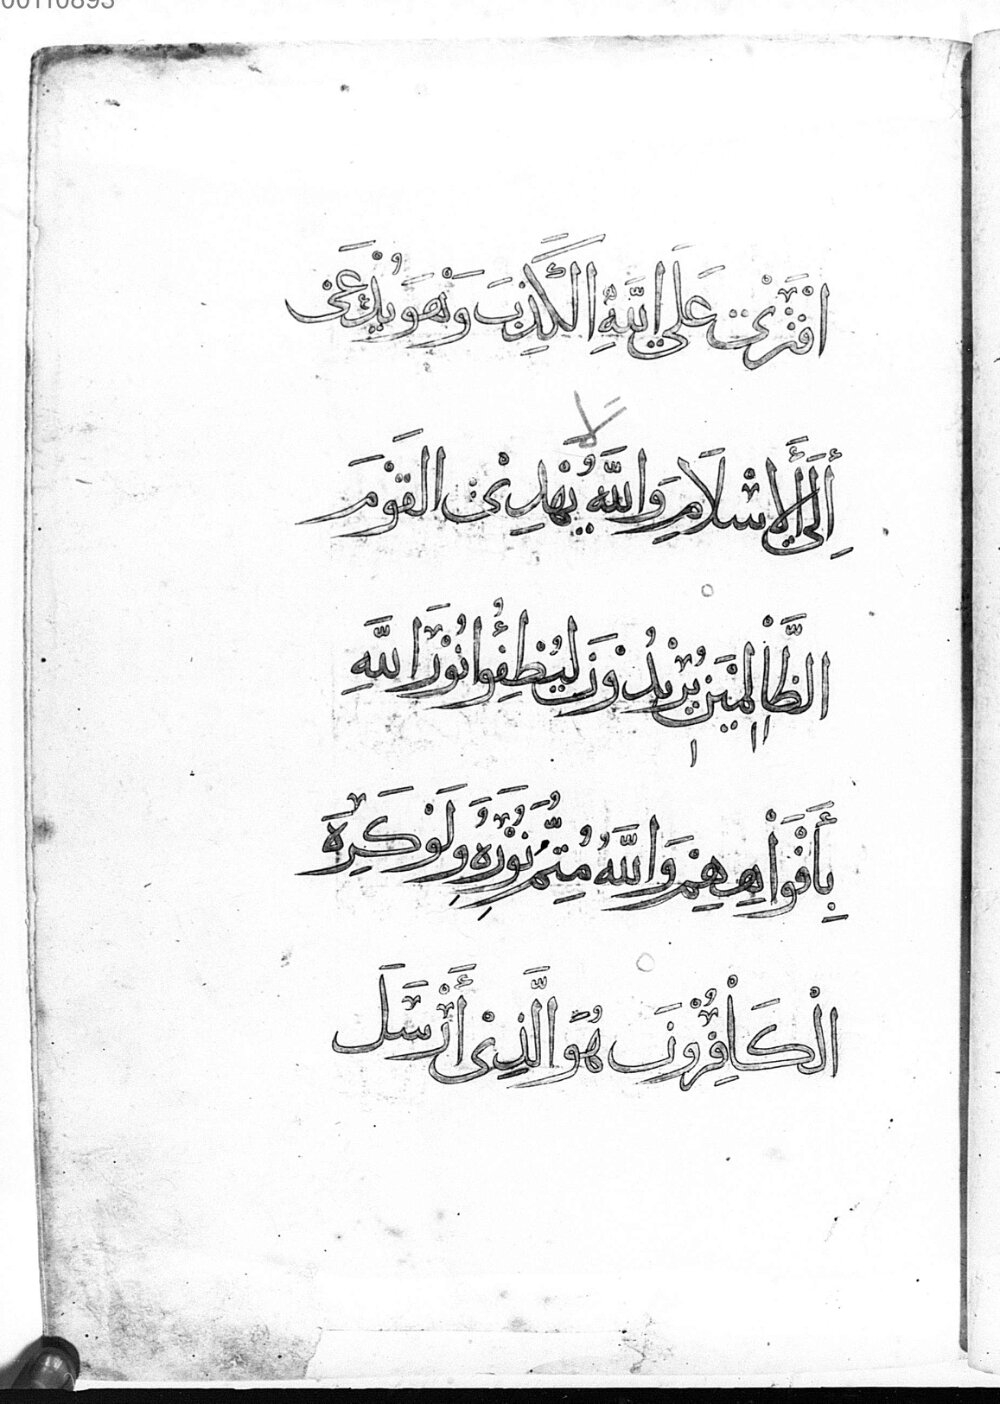 00110893
افْتَرَىٰ عَلَى اللَّهِ الْكَذِبَ وَهُوَ يُدْعَىٰ
إِلَى الْإِسْلَامِ وَاللَّهُ لَا يَهْدِي الْقَوْمَ
الظَّالِمِيْنَ يُرِيْدُوْنَ لِيُطْفِئُوا نُوْرَ اللَّهِ
بِأَفْوَاهِهِمْ وَاللَّهُ مُتِمُّ نُوْرِهِ وَلَوْ كَرِهَ
الْكَافِرُوْنَ هُوَ الَّذِيْ أَرْسَلَ